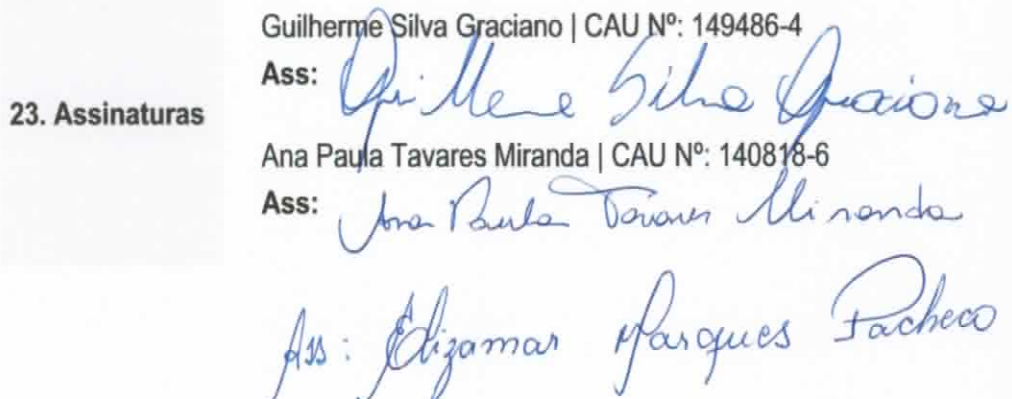 Guilherme Silva Graciano | CAU Nº: 149486-4
Ass: Guilherme Silva Graciano
23. Assinaturas
Ana Paula Tavares Miranda | CAU Nº: 140818-6
Ass: Ana Paula Tavares Miranda
Ass: Elizamar Marques Pacheco